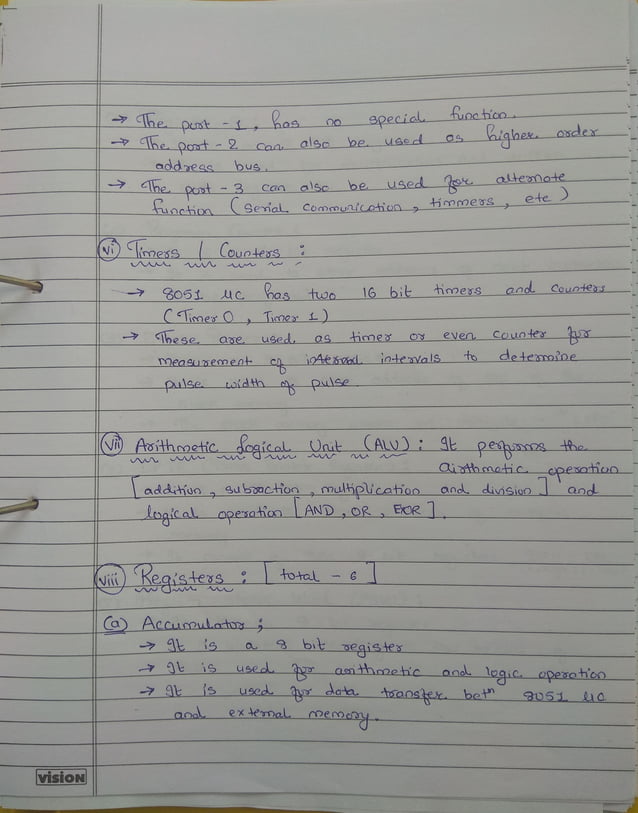 → The port - 1, has no special function.
→ The port - 2 can also be used as higher order
address bus.
→ The port - 3 can also be used for alternate
function (serial communication, timmers, etc)
(vi) Timers / Counters :
→ 8051 uc has two 16 bit timers and counters
(Timer 0, Timer 1)
→ These are used as timer or even counter for
measurement of intervals to determine
pulse width of pulse.
(vii) Arithmetic Logical Unit (ALU) : It performs the
airthmetic operation
[addition, subraction, multiplication and division] and
logical operation [AND, OR, EXOR].
(viii) Registers : [total - 6]
(a) Accumulator ;
→ It is a 8 bit register
→ It is used for arithmetic and logic operation
→ It is used for data transfer betn 8051 uc
and external memory.
VISION